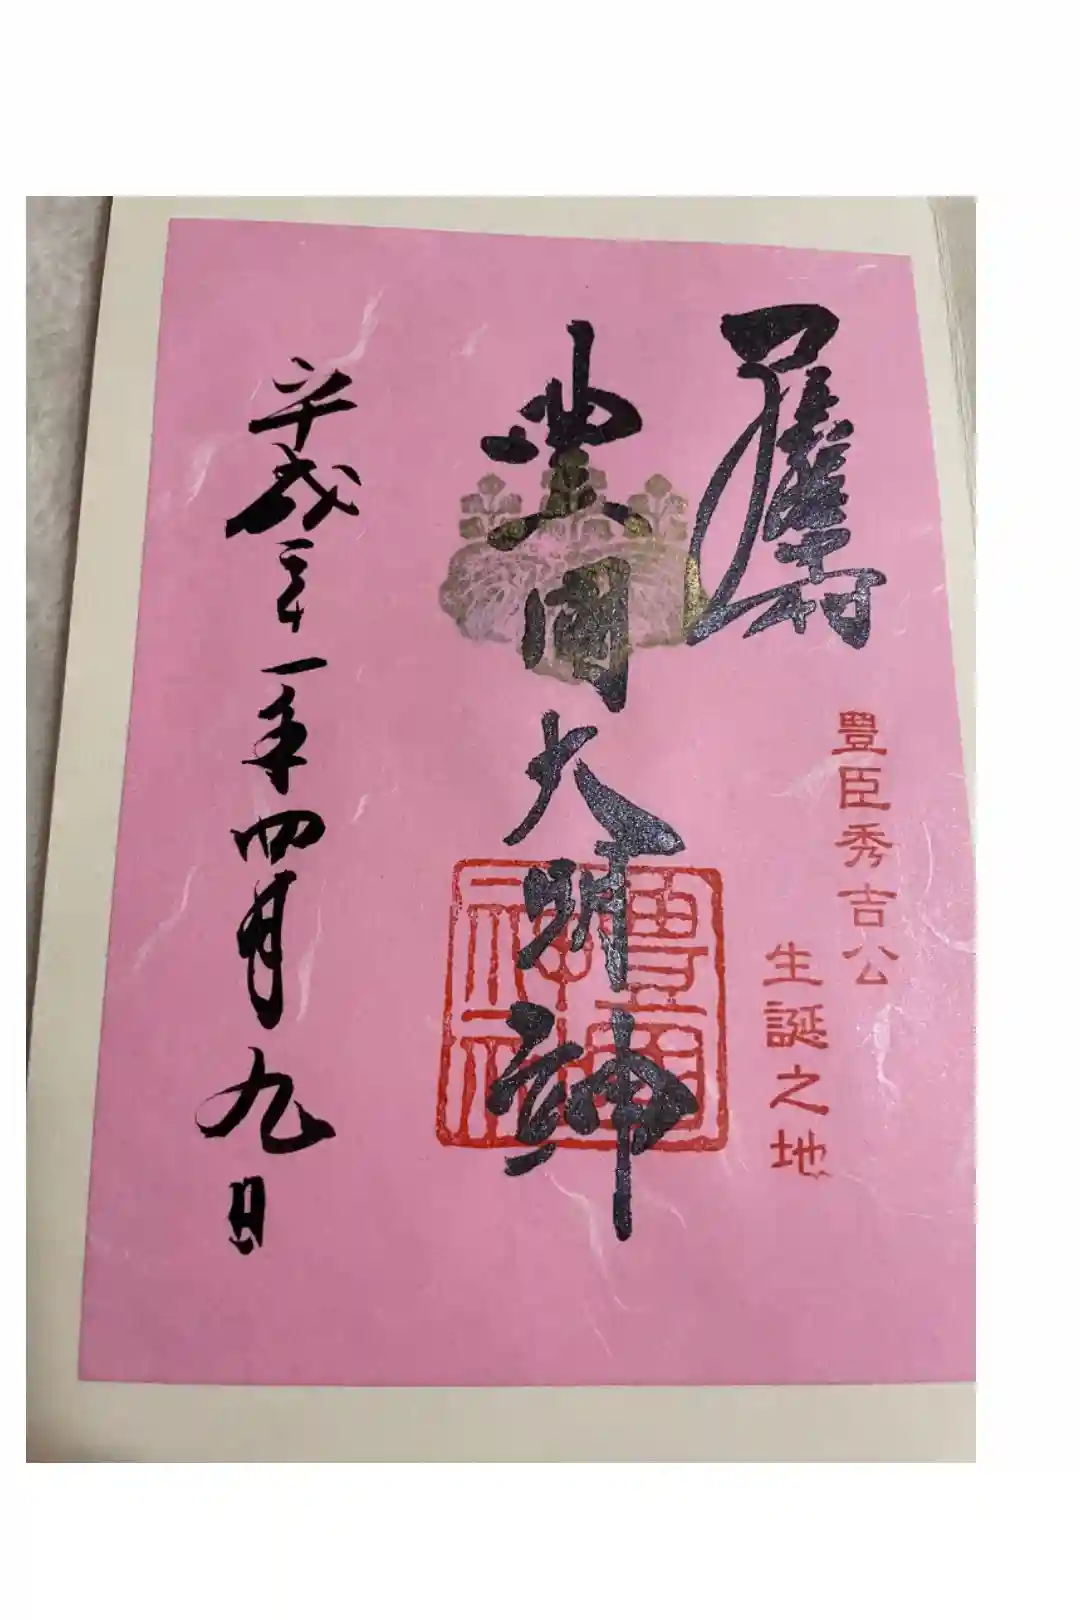 豊臣秀吉公
生誕之地
豊國大明神
豊國
神社
平成三十一年四月九日